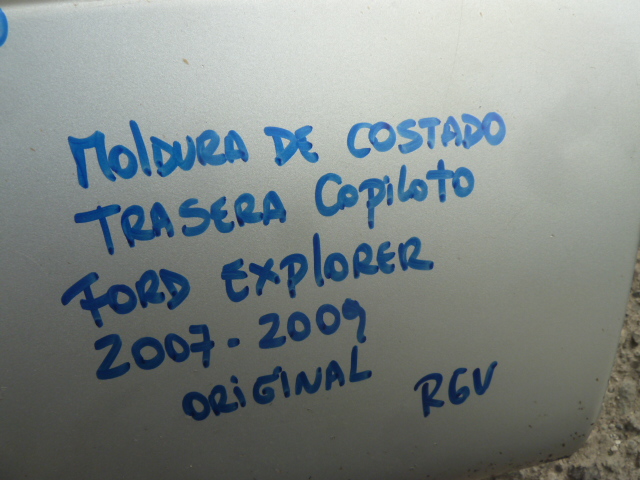 MOLDURA DE COSTADO
TRASERA COPILOTO
FORD EXPLORER
2007-2009
ORIGINAL RGV